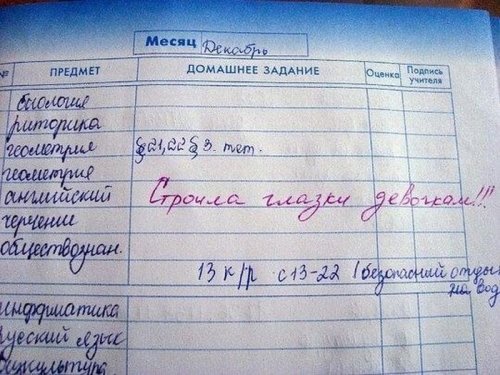 Месяц Декабрь
№ ПРЕДМЕТ ДОМАШНЕЕ ЗАДАНИЕ Оценка Подпись учителя
биология
риторика
геометрия §21,22 § 3. тет.
геометрия
английский Строила глазки девочкам!!!
черчение
обществознан.
13 к/р с 13-22 / безопасный отды
на вод
информатика
русский язык
физкультура